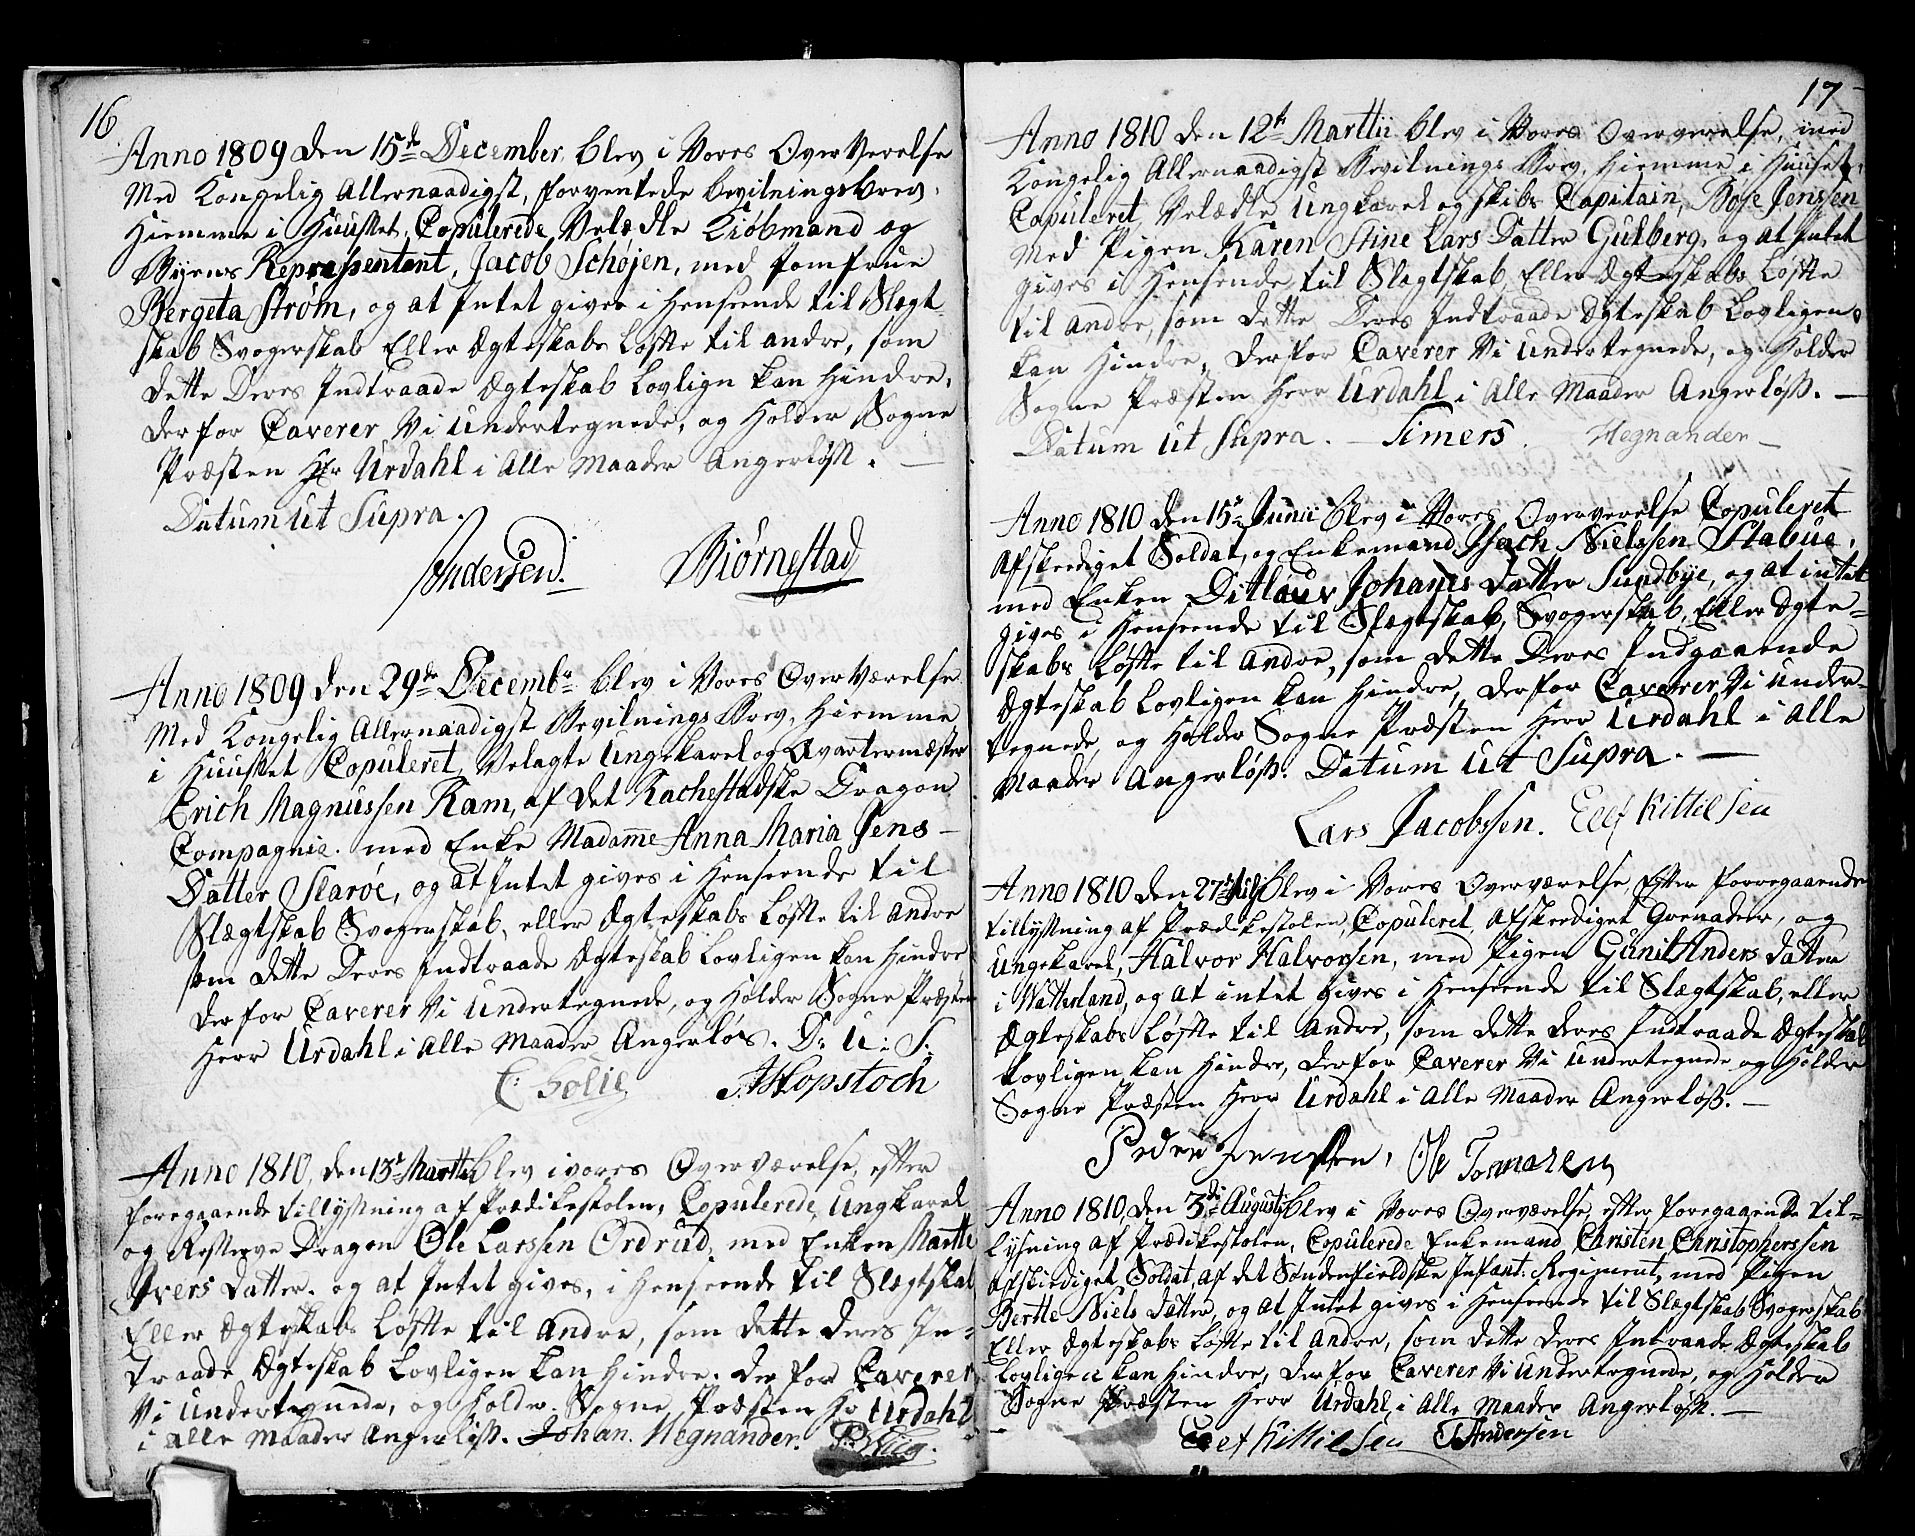 16
Anno 1809 den 15de December, blev i Vores OverVerelse
Med Kongelig Allernaadigst, forventede bevilningsbrev,
Hiemme i Huusset, Copulerede Velædle Kiøbmand og
Byens Repræssentant, Jacob Schøjen, med Jomfrue
Bergeta Strøm, og at Intet gives i Henseende til Slægt-
skab Svogerskab Eller Ægteskabs Løfte til andre, som
dette Deres Indtraade Ægteskab Lovlign kan Hindre,
derfor Caverer Vi Undertegnede, og Holder Sogne
Præsten Hr Urdahl i Alle Maader Angerløss. —
Datum Ut Supra.
Andersen. Biørnestad
Anno 1809 den 29de Decembr blev i Vores OverVærelse
Med Kongelig Allernaadigst Bevilnings Brev, Hiemme
i Huusset Copuleret, Velagte Ungekarel og Qvartermæster
Erich Magnussen Ram, af det Rachestadske Dragon
Compagnie. med Enke Madame Anna Maria Jens-
Datter Slarøe, og at Intet gives i Henseende til
Slægtskab Svogerskab, eller Ægteskabs Løfte til Andre
som dette Deres Indtraade Ægteskab Lovligen kan Hindre
derfor Caverer Vi Undertegnede, og Holder Sogne Præsten
Herr Urdahl i Alle Maader Angerløs. D: U: S:
C: Solie AHopstoch
Anno 1810, den 13de Martii blev i vores OverVærelse, efter
foregaaende tillysning af Prædikestolen, Copulerede, Ungkarel
og Reserve Dragon Ole Larssen Ordrud, med Enken Marthe
Ivers Datter. og at Intet gives, i Henseende til Slægtskab
Eller Ægteskabs Løfte til Andre, som dette deres In-
draade Ægteskab Lovligen kan Hindre. derfor Caverer
Vi Undertegnede, og Holder Sogne Præsten Hr Urdahl
i Alle Maader Angerløss. Johan. Hegnander.
17
Anno 1810 den 12te Martii blev i Vores Oververelse, med
Kongelig Allernaadigst Bevilnings Brev, Hiemme i Huuset,
Copuleret, Velædle Ungkarel og Skibs Capitain, Boje Jenssen
Med Pigen Karen Stine Lars Datter Gulberg, og at Intet
gives i Henseende til Slægtskab Eller Ægteskabs Løfte
til Andre, som dette Deres Indtraade Ægteskab Lovligen
kan Hindre, derfor Caverer Vi Undertegnede, og Holder
Sogne Præsten Herr Urdahl i Alle Maader Angerløss. —
Datum ut Supra. — Simers. Hegnander —
Anno 1810 den 15de Junii blev i Vores Oververelse Copuleret
Afskediget Soldat, og Enkemand Isach Nielssen Stabue,
med Enken Ditlauv Johanes Datter Sundbye, og at intet
gives i Henseende til Slægtskab, Svogerskab, Eller Ægte-
skabs Løfte til Andre, som dette Deres Indgaaende
Ægteskab Lovligen kan Hindre, derfor Caverer Vi Under-
tegnede, og Holder Sogne Præsten Herr Urdahl i Alle
Maader Angerløss. Datum Ut Supra. —
Lars Jacobssen. Ellef Kittelsen
Anno 1810 den 27de Julj blev i Vores Overværelse, Efter forregaaende
tillysning af Prædikestolen, Copuleret, Afskediget Grenadeer, og
Ungekarel, Halvor Halvorsen, med Pigen Gunil Anders Datter
i Watterland, og at intet gives i Henseende til Slægtskab, eller
Ægteskabs Løfte til Andre, som dette deres Indtraade Ægteskab
Lovligen kan Hindre, derfor Caverer Vi Undertegnede og Holder
Sogne Præsten Herr Urdahl i Alle Maader Angerløss. —
Peder Jenssen, Ole Tommasen
Anno 1810, den 3die Augusti blev i Vores Overværelse, efter foregaaende til-
lysning af Prædikestolen, Copulerede Enkemand Christen Christopherssen
Afskediget Soldat, af det Søndenfieldske Infant: Regiment, med Pigen
Berthe Niels Datter, og at Intet gives i Henseende til Slægtskab Svogerskab
Eller Ægteskabs Løfte til Andre, som dette deres Intraade Ægteskab
Lovligen kan Hindre, derfor Caverer Vi Undertegnede, og Holder
Sogne Præsten Herr Urdahl, i Alle Maader Angerløst. —
Ellef Kittelsen TAndersen